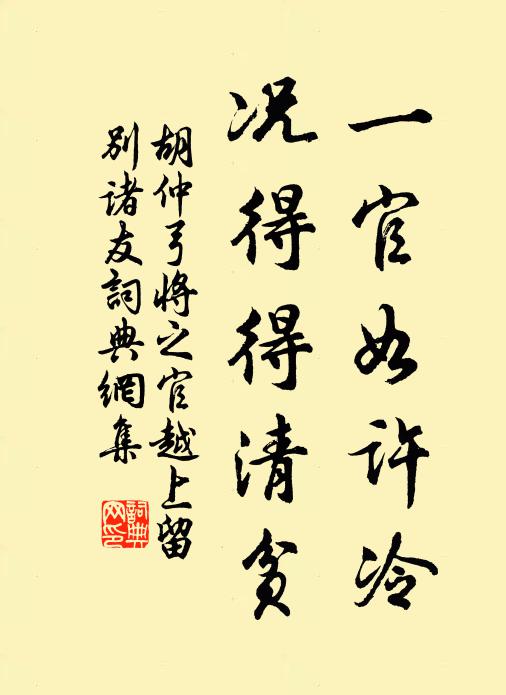 一官如许冷
况得得清贫
胡仲弓将之官越上留
别诸友詞典網集
詞典网印